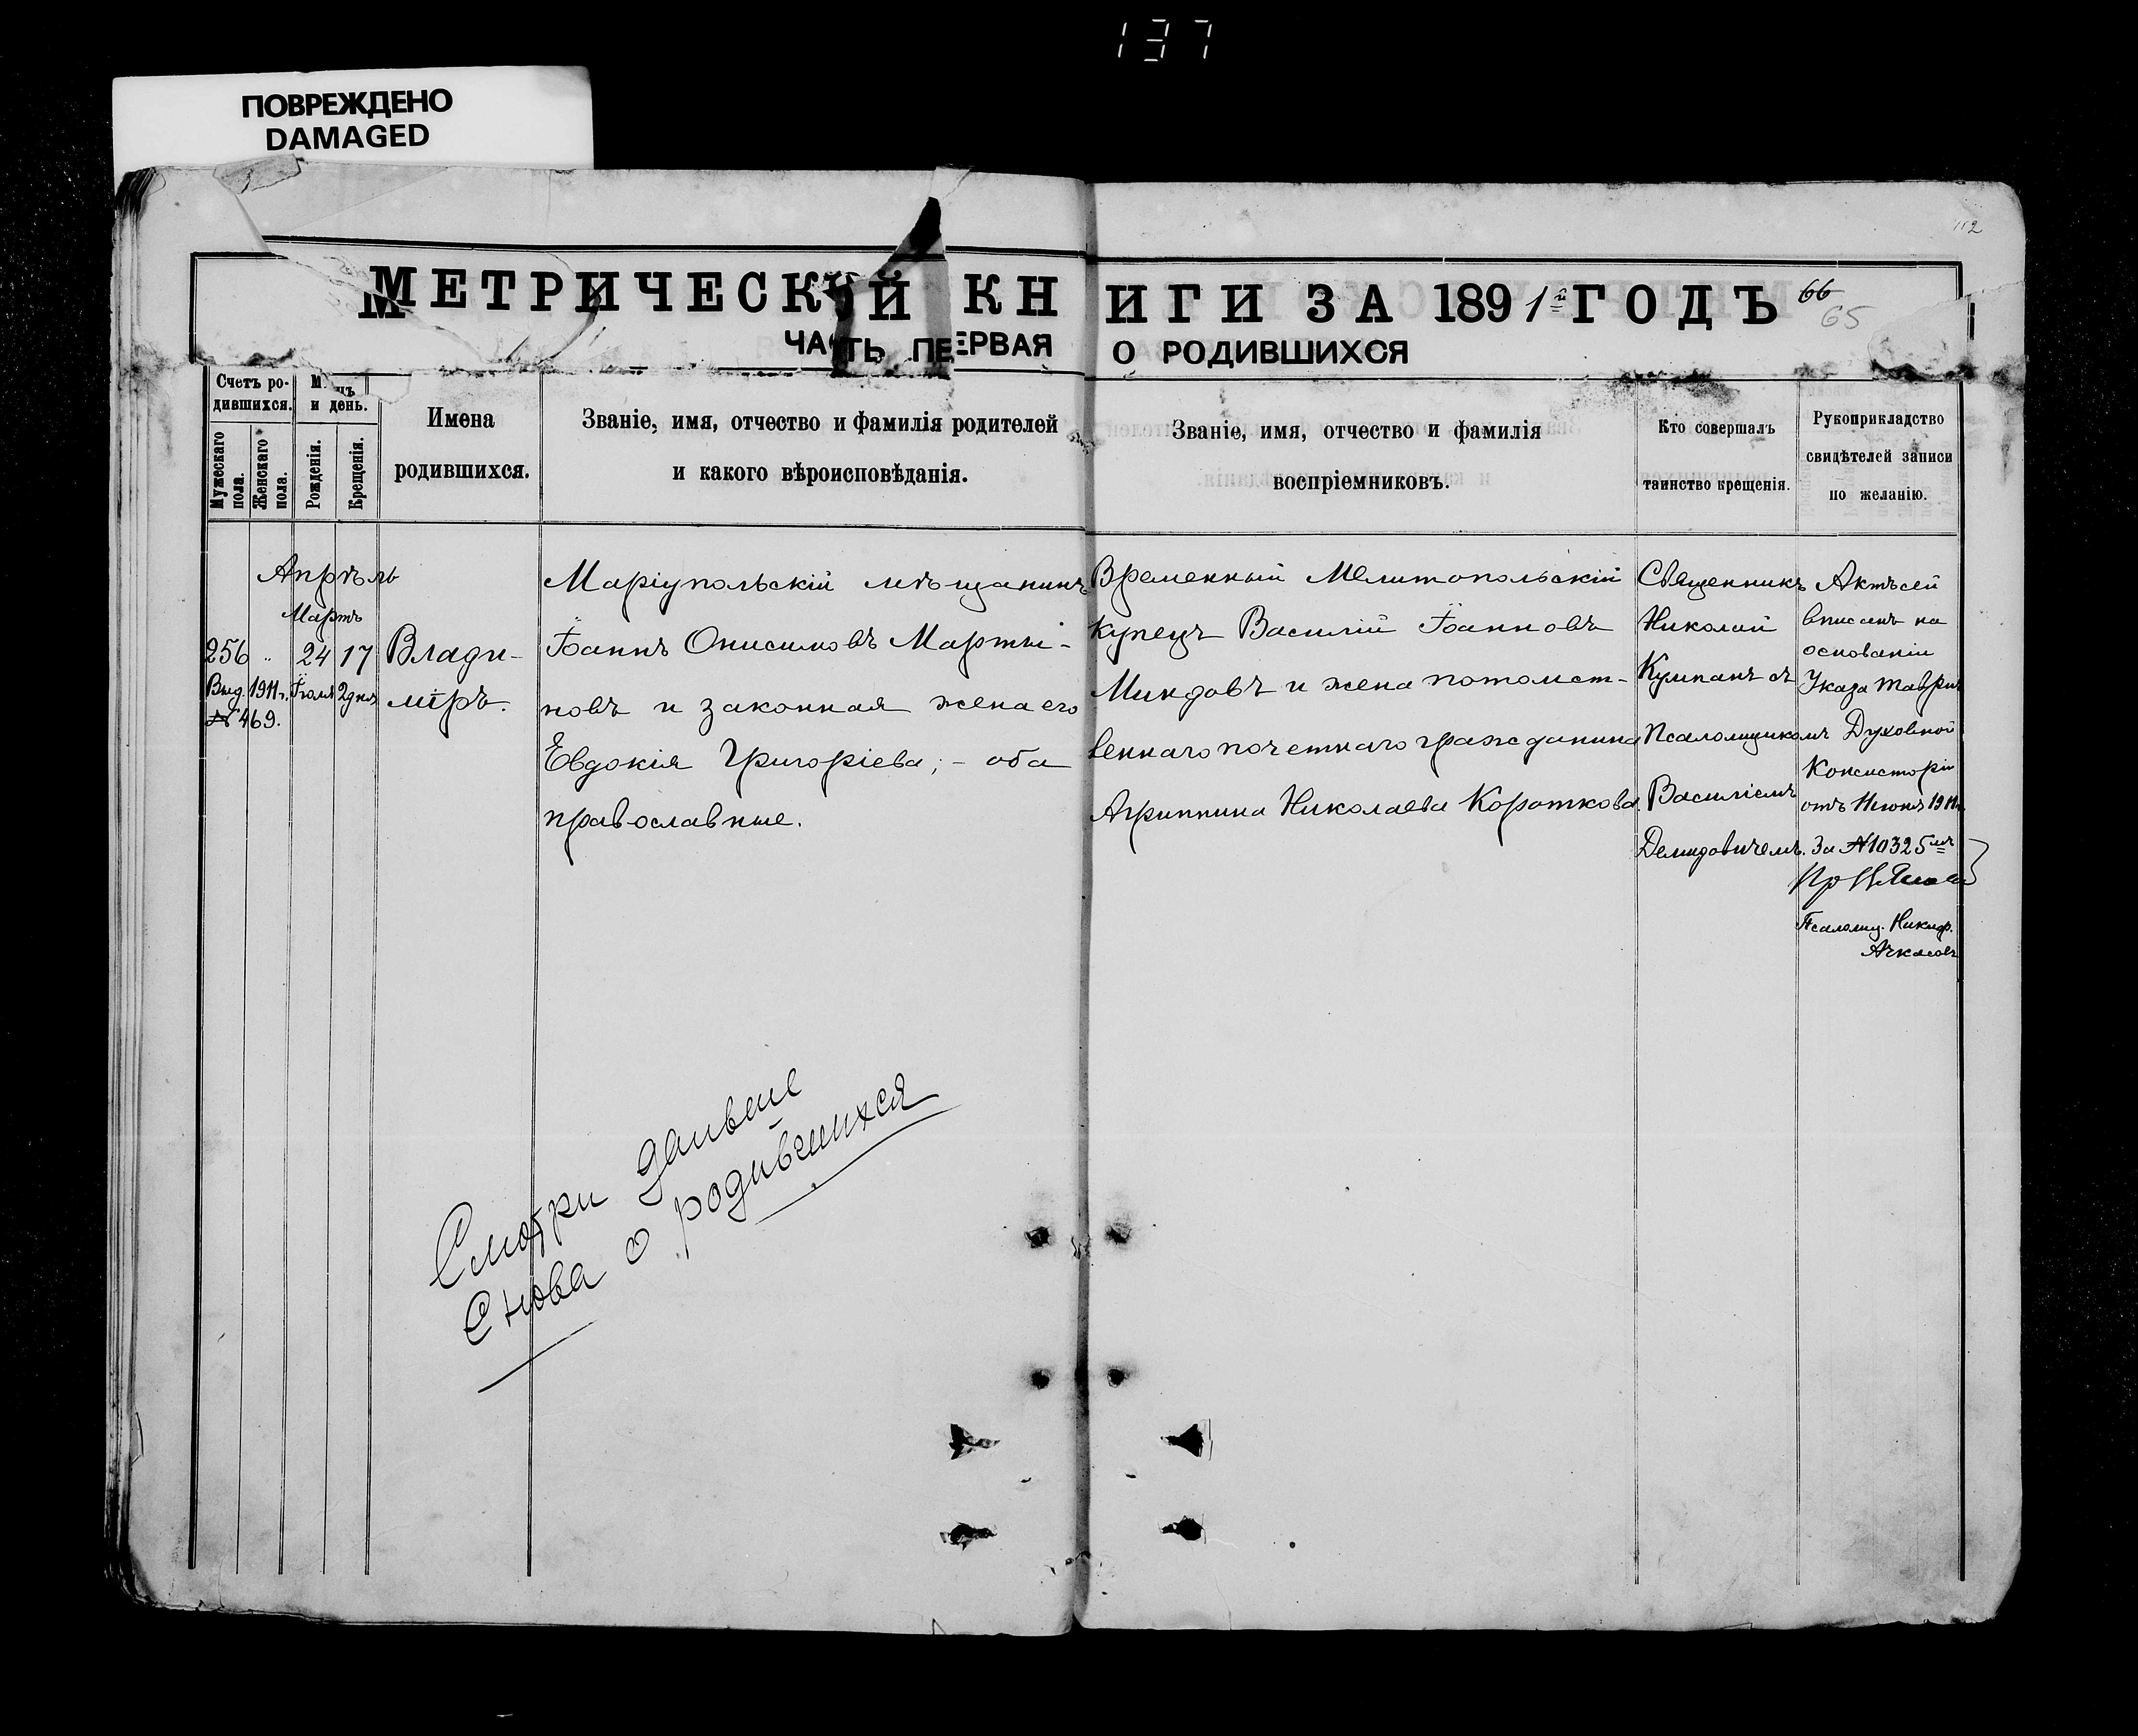 137
ПОВРЕЖДЕНО
DAMAGED
112
МЕТРИЧЕСКОЙ КНИГИ ЗА 1891й ГОДЪ
66
65
ЧАСТЬ ПЕРВАЯ О РОДИВШИХСЯ
Счетъ ро-
дившихся.
Мужескаго пола.
Женскаго пола.
М цъ
и день.
Рожденія.
Крещенія.
Имена
родившихся.
Званіе, имя, отчество и фамилія родителей
и какого вѣроисповѣданія.
Званіе, имя, отчество и фамилія
воспріемниковъ.
Кто совершалъ
таинство крещенія.
Рукоприкладство
свидѣтелей записи
по желанію.
Апрѣль
Мартъ
256 " 24 17
Выд. 1911 г. Іюля 2 дня
№ 469.
Влади-
міръ.
Маріупольскій мѣщанинъ
Іоаннъ Онисимовъ Марты-
новъ и законная жена его
Евдокія Григоріева; - оба
православные.
Временный Мелитопольскій
купецъ Василій Іоанновъ
Миндовъ и жена потомст-
веннаго почетнаго гражданина
Агриппина Николаева Короткова.
Священникъ
Николай
Кумпанъ съ
Псаломщикомъ
Василіемъ
Демидовичемъ.
Актъ сей
вписанъ на
основаніи
Указа Таврич.
Духовной
Консисторіи
отъ 11 іюня 1911 г.
За № 10325мъ
Псаломщ. Никиф.
Ачкасовъ
Смотри дальше
Снова о родившихся